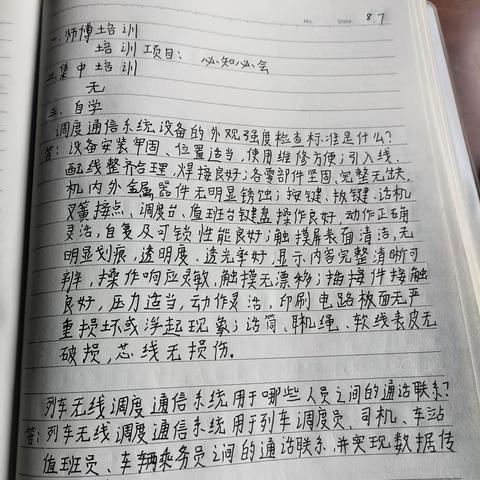 No. Date. 8.7
一.师傅培训
培训项目：必知必会
二.集中培训
无
三.自学
调度通信系统设备的外观强度检查标准是什么？
答：设备安装牢固、位置适当，使用维修方便；引入线.
配线整齐合理，焊接良好；各零部件坚固、完整无缺；
机内外金属器件无明显锈蚀；按键、扳键、话机
叉簧接点、调度台、值班台键盘操作良好，动作正确
灵活，自复及可锁性能良好；触摸屏表面清洁，无
明显划痕，透明度、透光率好，显示内容完整清晰可
辨，操作响应灵敏，触摸无漂移；插接件接触
良好，压力适当，动作灵活，印刷电路板面无严
重损坏或浮起现象；话筒、耳机绳、软线表皮无
破损，芯线无损伤。
列车无线调度通信系统用于哪些人员之间的通话联系？
答：列车无线调度通信系统用于列车调度员、司机、车站
值班员、车辆乘务员之间的通话联系，并实现数据传